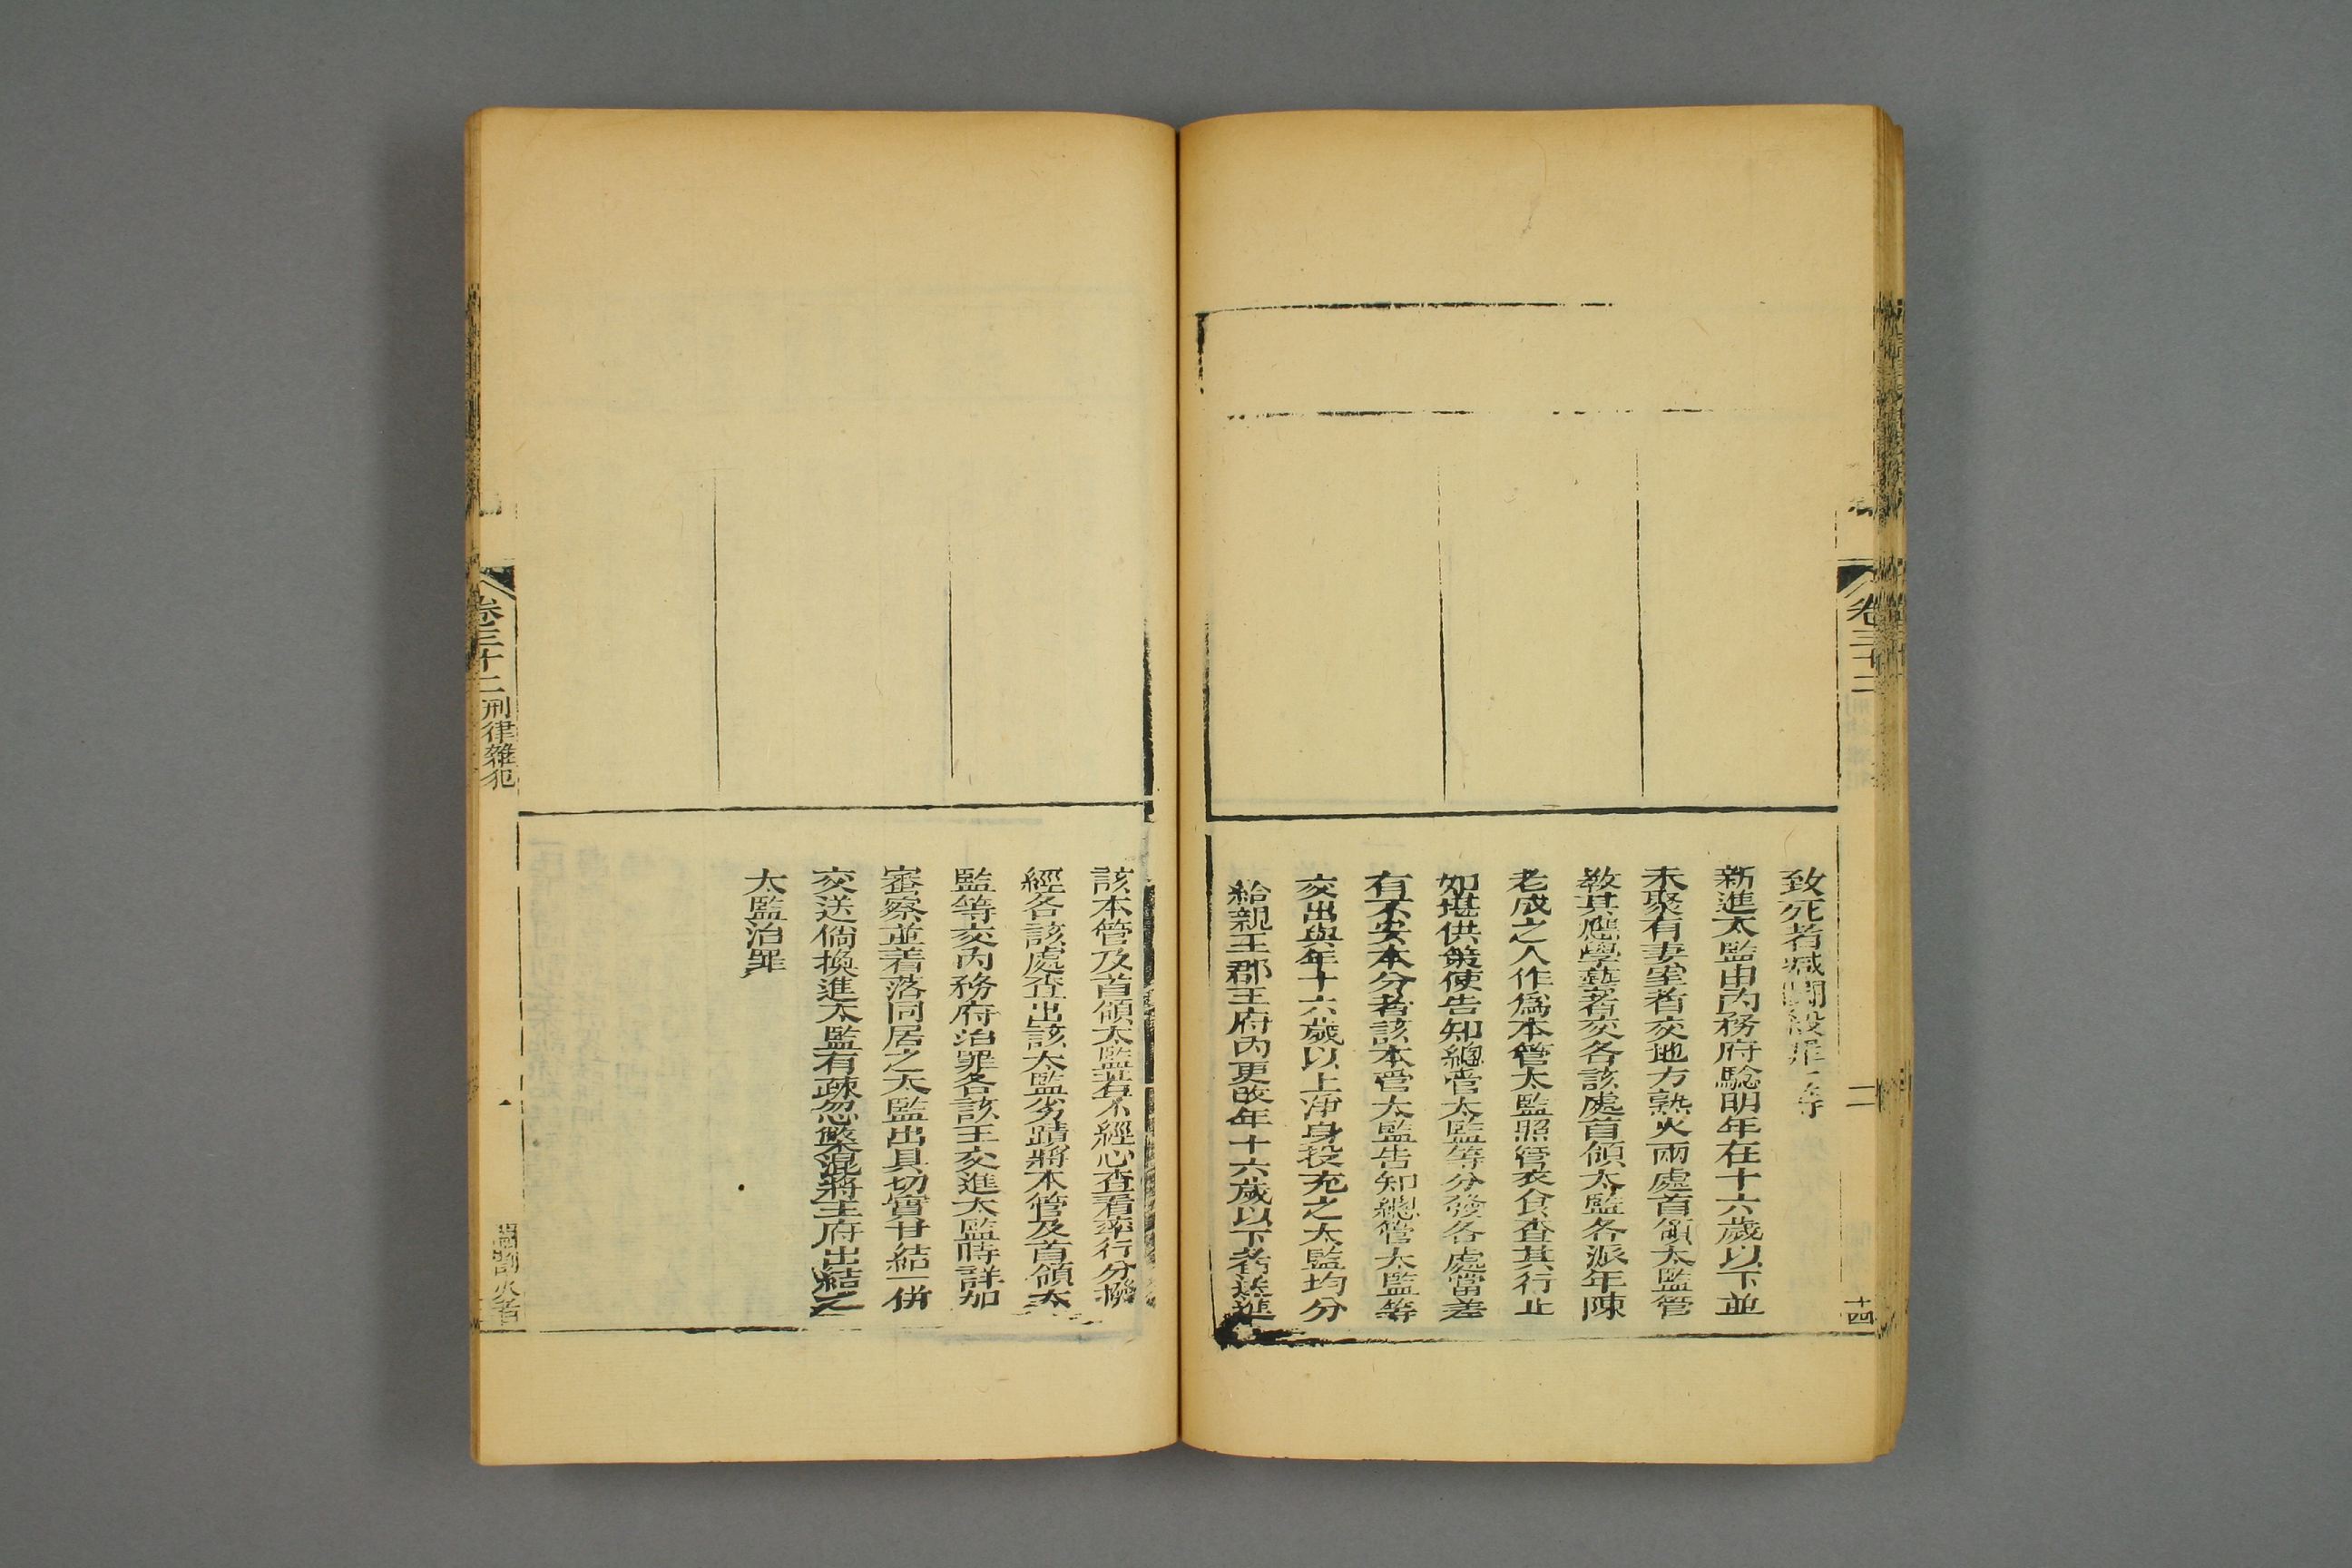 致死者減鬬殺罪一等
新進太監由內務府驗明年在十六歲以下並
未聚有妻室者交地方熟火兩處首領太監管
敎其應學藝者交各該處首領太監各派年陳
老成之人作爲本管太監照管衣食查其行止
如堪供策使告知總管太監等分發各處當差
有不安本分者該本管太監告知總管太監等
交出與年十六歲以上淨身投充之太監均分
給親王郡王府內更改年十六歲以下者送進
卷三十二
二
十四
該本管及首領太監若不經心查看率行分撥
經各該處查出該太監劣蹟將本管及首領太
監等交內務府治罪各該王交進太監時詳加
審察並着落同居之太監出具切實甘結一併
交送倘換進太監有疎忽蒙混將王府出結之
太監治罪
卷三十二 刑律雜犯
閹割火者